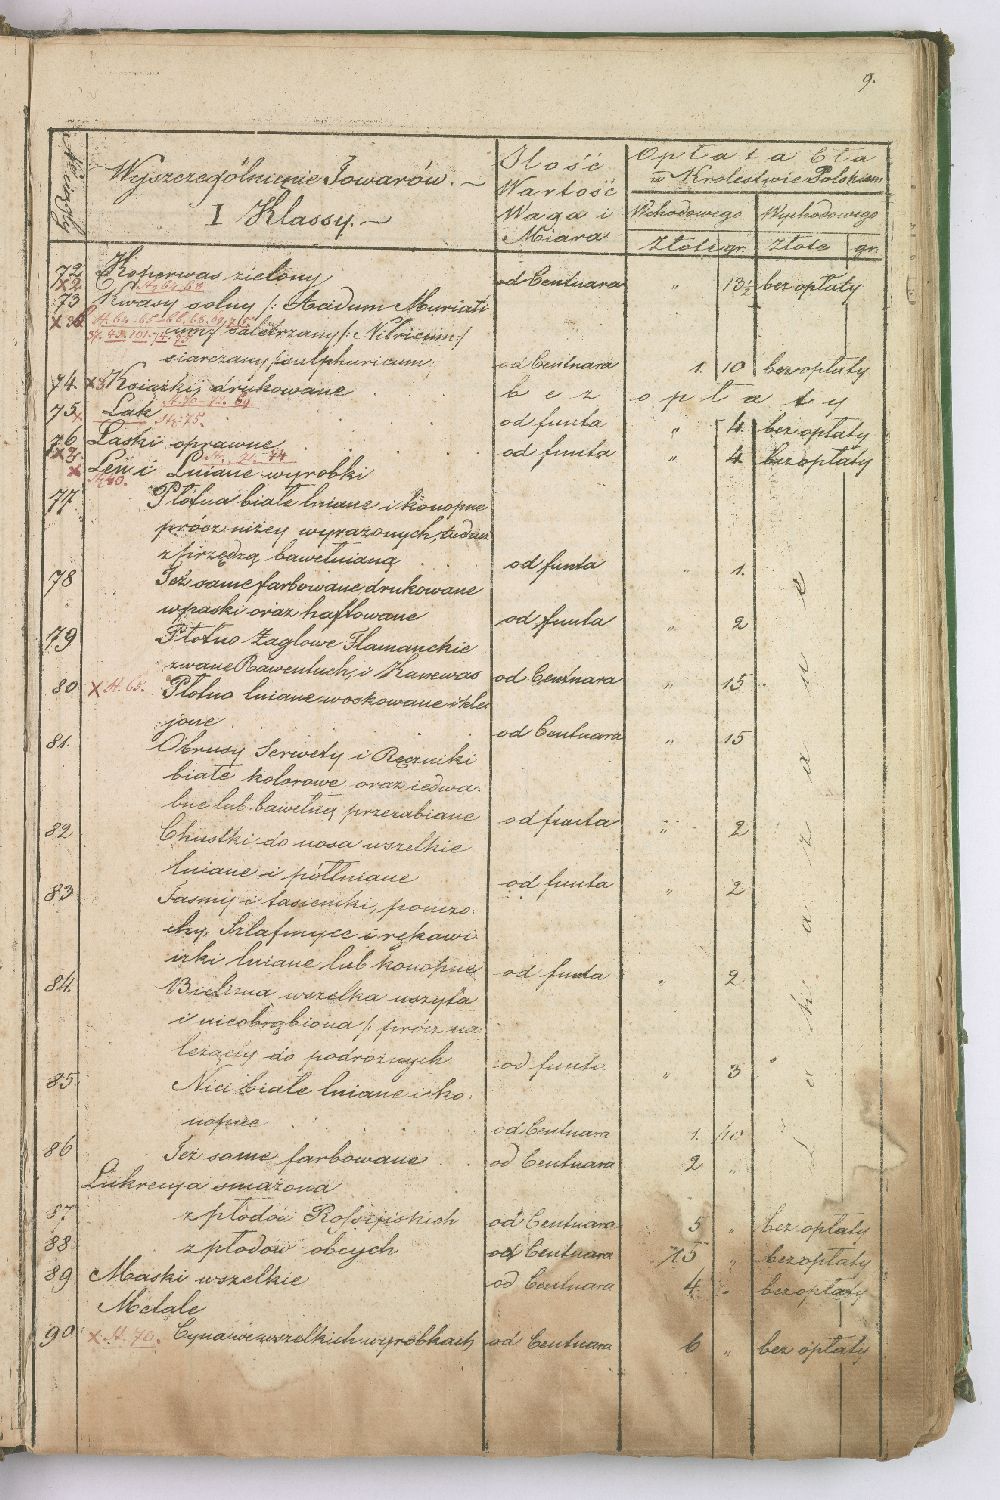 9.
Wyszczególnienie Towarów.
I Klassy.
Ilość
Wartość
Waga i
Miara
Opłata Cła
w Krolestwie Polskiem
Wchodowego Wychodowego
Złote gr. Złote gr.
72 Koperwas zielony od Centnara " 13½ bez opłaty
73 Kwasy solny /: Acidum Muriati
cum/ saletrzany /: Nitricum/
siarczany /: sulphuricum. od Centnara 1. 10 bez opłaty
74 Książki drukowane bez opłaty
75 Lak od funta " 4. bez opłaty
76 Laski oprawne od funta " 4 bez opłaty
Len i Lniane wyrobki
77 Płótna białe lniane i konopne
prócz niżey wyrażonych, tudzież
z przędzą bawełnianą od funta " 1.
78 Też same farbowane drukowane
w paski oraz haftowane od funta " 2
79 Płótno Żaglowe Flamandzkie
zwane Rawentuch, i Kanewas od Centnara " 15
80 x St. 65. Płótno lniane woskowane i kle
jone od Centnara " 15
81. Obrusy Serwety i Ręczniki
białe kolorowe oraz iedwa-
bne lub bawełną przerabiane od funta " 2
82 Chustki do nosa wszelkie
lniane i półlniane od funta " 2
83 Tasmy i tasiemki, ponczo.
chy, Szlafmyce i rękawi
czki lniane lub konopne od funta " 2.
84 Bielizna wszelka uszyta
i nieobrąbiona /: prócz na
leżący do podróżnych od funta " 3
85 Nici białe lniane i ko.
nopne od Centnara 1. 10
86 Też same farbowane od Centnara 2 "
Lukrecya smażona
87 z płodów Rossyiskich od Centnara 5 " bez opłaty
88 z płodów obcych od Centnara 15 " bez opłaty
89 Maski wszelkie od Centnara 4 " bez opłaty
Metale
90 x St. 70. Cyna we wszelkich wyrobkach od Centnara 6 " bez opłaty